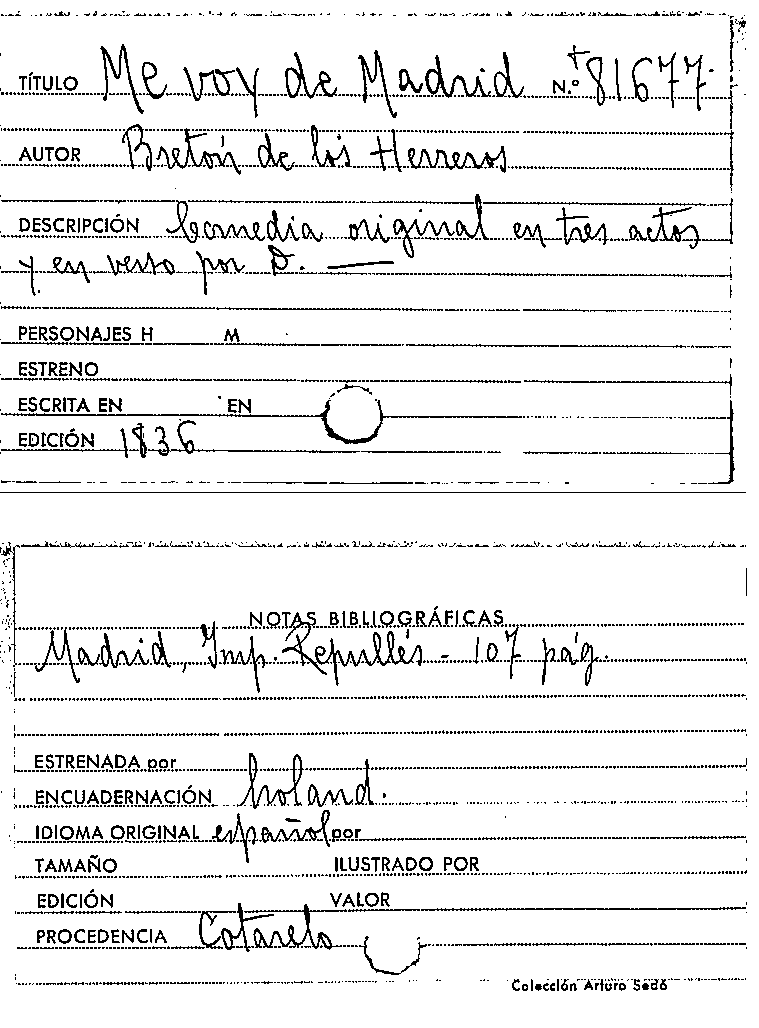 TÍTULO Me voy de Madrid N.º 81677
AUTOR Bretón de los Herreros
DESCRIPCIÓN Comedia original en tres actos
y en verso por D. —
PERSONAJES H M
ESTRENO
ESCRITA EN EN
EDICIÓN 1836
NOTAS BIBLIOGRÁFICAS
Madrid, Imp. Repullés - 107 pág.
ESTRENADA por
ENCUADERNACIÓN holand.
IDIOMA ORIGINAL español por
TAMAÑO ILUSTRADO POR
EDICIÓN VALOR
PROCEDENCIA Cotarelo
Colección Arturo Sedó